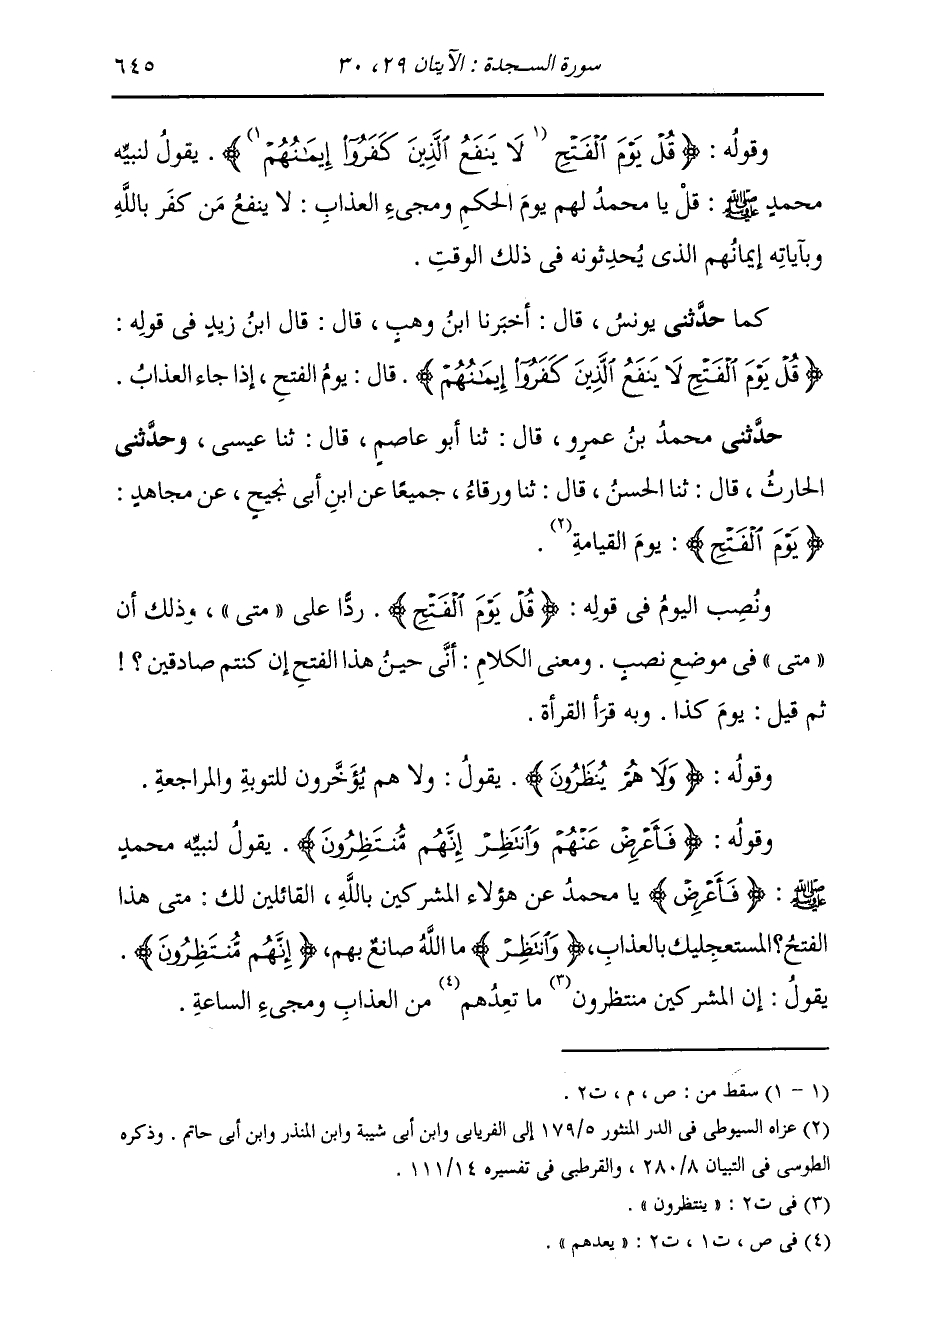 سورة السجدة : الآيتان ٢٩، ٣٠ ٦٤٥
وقولُه : ﴿ قُلْ يَوْمَ ٱلْفَتْحِ (١) لَا يَنفَعُ ٱلَّذِينَ كَفَرُوٓا۟ إِيمَٰنُهُمْ (١) ﴾ . يقولُ لنبيِّه
محمدٍ ﷺ : قلْ يا محمدُ لهم يومَ الحكمِ ومجىءِ العذابِ : لا ينفعُ مَن كفَر باللَّهِ
وبآياتِه إيمانُهم الذى يُحدِثونه فى ذلك الوقتِ .
كما حدَّثنى يونسُ ، قال : أخبَرنا ابنُ وهبٍ ، قال : قال ابنُ زيدٍ فى قولِه :
﴿ قُلْ يَوْمَ ٱلْفَتْحِ لَا يَنفَعُ ٱلَّذِينَ كَفَرُوٓا۟ إِيمَٰنُهُمْ ﴾ . قال : يومُ الفتحِ ، إذا جاء العذابُ .
حدَّثنى محمدُ بنُ عمرٍو ، قال : ثنا أبو عاصمٍ ، قال : ثنا عيسى ، وحدَّثنى
الحارثُ ، قال : ثنا الحسنُ ، قال : ثنا ورقاءُ ، جميعًا عن ابنِ أبى نجيحٍ ، عن مجاهدٍ :
﴿ يَوْمَ ٱلْفَتْحِ ﴾ : يومَ القيامةِ (٢) .
ونُصِب اليومُ فى قولِه : ﴿ قُلْ يَوْمَ ٱلْفَتْحِ ﴾ . ردًّا على « متى » ، وذلك أن
« متى » فى موضعِ نصبٍ . ومعنى الكلامِ : أنَّى حينُ هذا الفتحِ إن كنتم صادقين ؟ !
ثم قيل : يومَ كذا . وبه قرَأ القرأة .
وقولُه : ﴿ وَلَا هُمْ يُنظَرُونَ ﴾ . يقولُ : ولا هم يُؤَخَّرون للتوبةِ والمراجعةِ .
وقولُه : ﴿ فَأَعْرِضْ عَنْهُمْ وَٱنتَظِرْ إِنَّهُم مُّنتَظِرُونَ ﴾ . يقولُ لنبيِّه محمدٍ
ﷺ : ﴿ فَأَعْرِضْ ﴾ يا محمدُ عن هؤلاء المشركين باللَّهِ ، القائلين لك : متى هذا
الفتحُ؟ المستعجليك بالعذابِ، ﴿ وَٱنتَظِرْ ﴾ ما اللَّهُ صانعٌ بهم، ﴿ إِنَّهُم مُّنتَظِرُونَ ﴾ .
يقولُ : إن المشركين منتظرون (٣) ما تعِدُهم (٤) من العذابِ ومجىءِ الساعةِ .
(١ - ١) سقط من : ص ، م ، ت٢ .
(٢) عزاه السيوطى فى الدر المنثور ١٧٩/٥ إلى الفريابى وابن أبى شيبة وابن المنذر وابن أبى حاتم . وذكره
الطوسى فى التبيان ٢٨٠/٨ ، والقرطبى فى تفسيره ١١١/١٤ .
(٣) فى ت٢ : « ينتظرون » .
(٤) فى ص ، ت١ ، ت٢ : « يعدهم » .